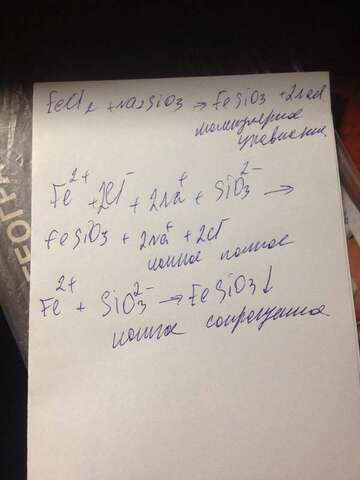 FeCl2 + Na2SiO3 → FeSiO3 + 2NaCl
молекулярное
уравнение
Fe2+ + 2Cl- + 2Na+ + SiO3 2- →
FeSiO3 + 2Na+ + 2Cl-
ионное полное
Fe2+ + SiO3 2- → FeSiO3↓
ионное сокращенное
ГЕОГРА